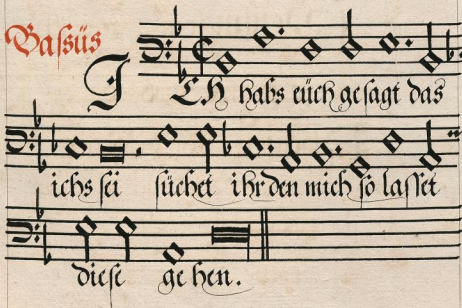 Bassüs
ICH habs eüch gesagt das
ichs sei süchet ihr den mich so lasset
diese gehen.